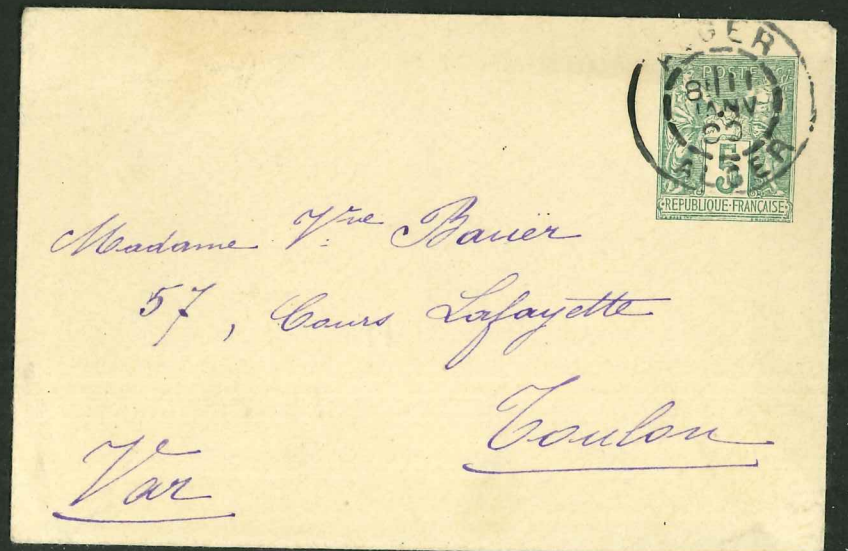 ALGER
POSTE
8 11
JANV
5
ALGER
REPUBLIQUE FRANÇAISE
Madame Vve Bauër
57, Cours Lafayette
Toulon
Var